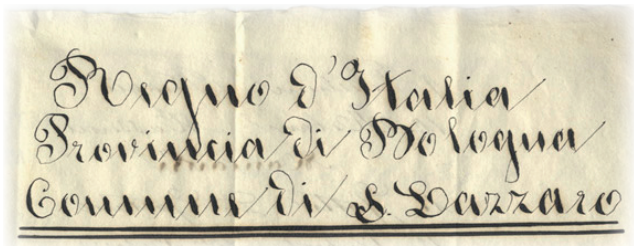 Regno d'Italia
Provincia di Bologna
Comune di S. Lazzaro